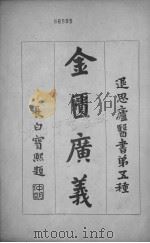 退思廬醫書第五種
金匱廣義
長白寶熙題